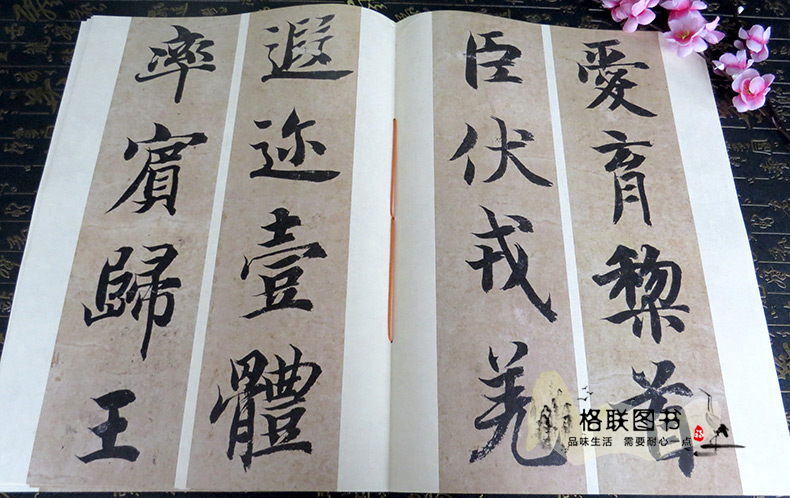 愛育黎首
臣伏戎羌
遐迩壹體
率賓歸王
格联图书
品味生活 需要耐心一点